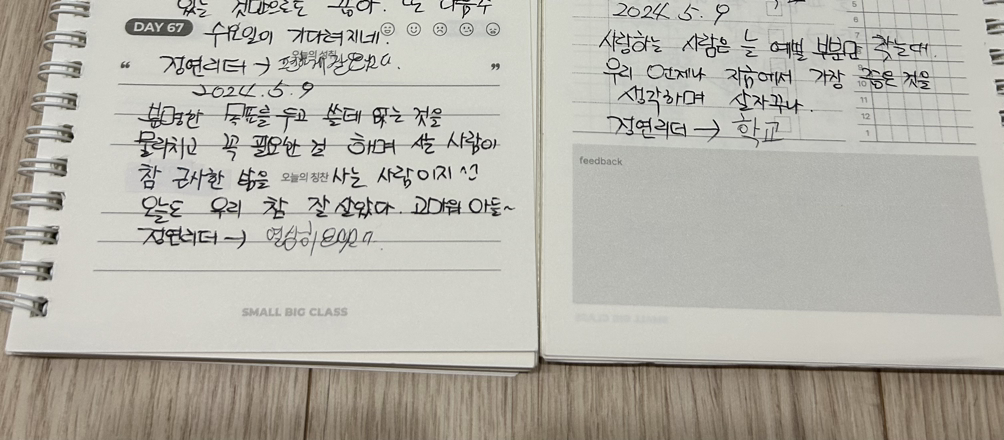 있는 것만으로도 좋아. 난 다음주
DAY 67
수요일이 기다려지네.
“ 오늘의 성찰 ”
정연리더 →
2024.5.9
분명한 목표를 두고 쓸데 없는 것을
물리치고 꼭 필요한 걸 하며 사는 사람이
참 근사한 삶을 사는 사람이지 ^^
오늘의 칭찬
오늘도 우리 참 잘 살았다. 고마워 아들~
정연리더 → 열심히
SMALL BIG CLASS
2024.5.9
사랑하는 사람은 늘 예쁜 부분만 찾는대.
우리 언제나 지금에서 가장 좋은 것을
생각하며 살자꾸나.
정연리더 → 학교
5
6
10
11
12
1
feedback